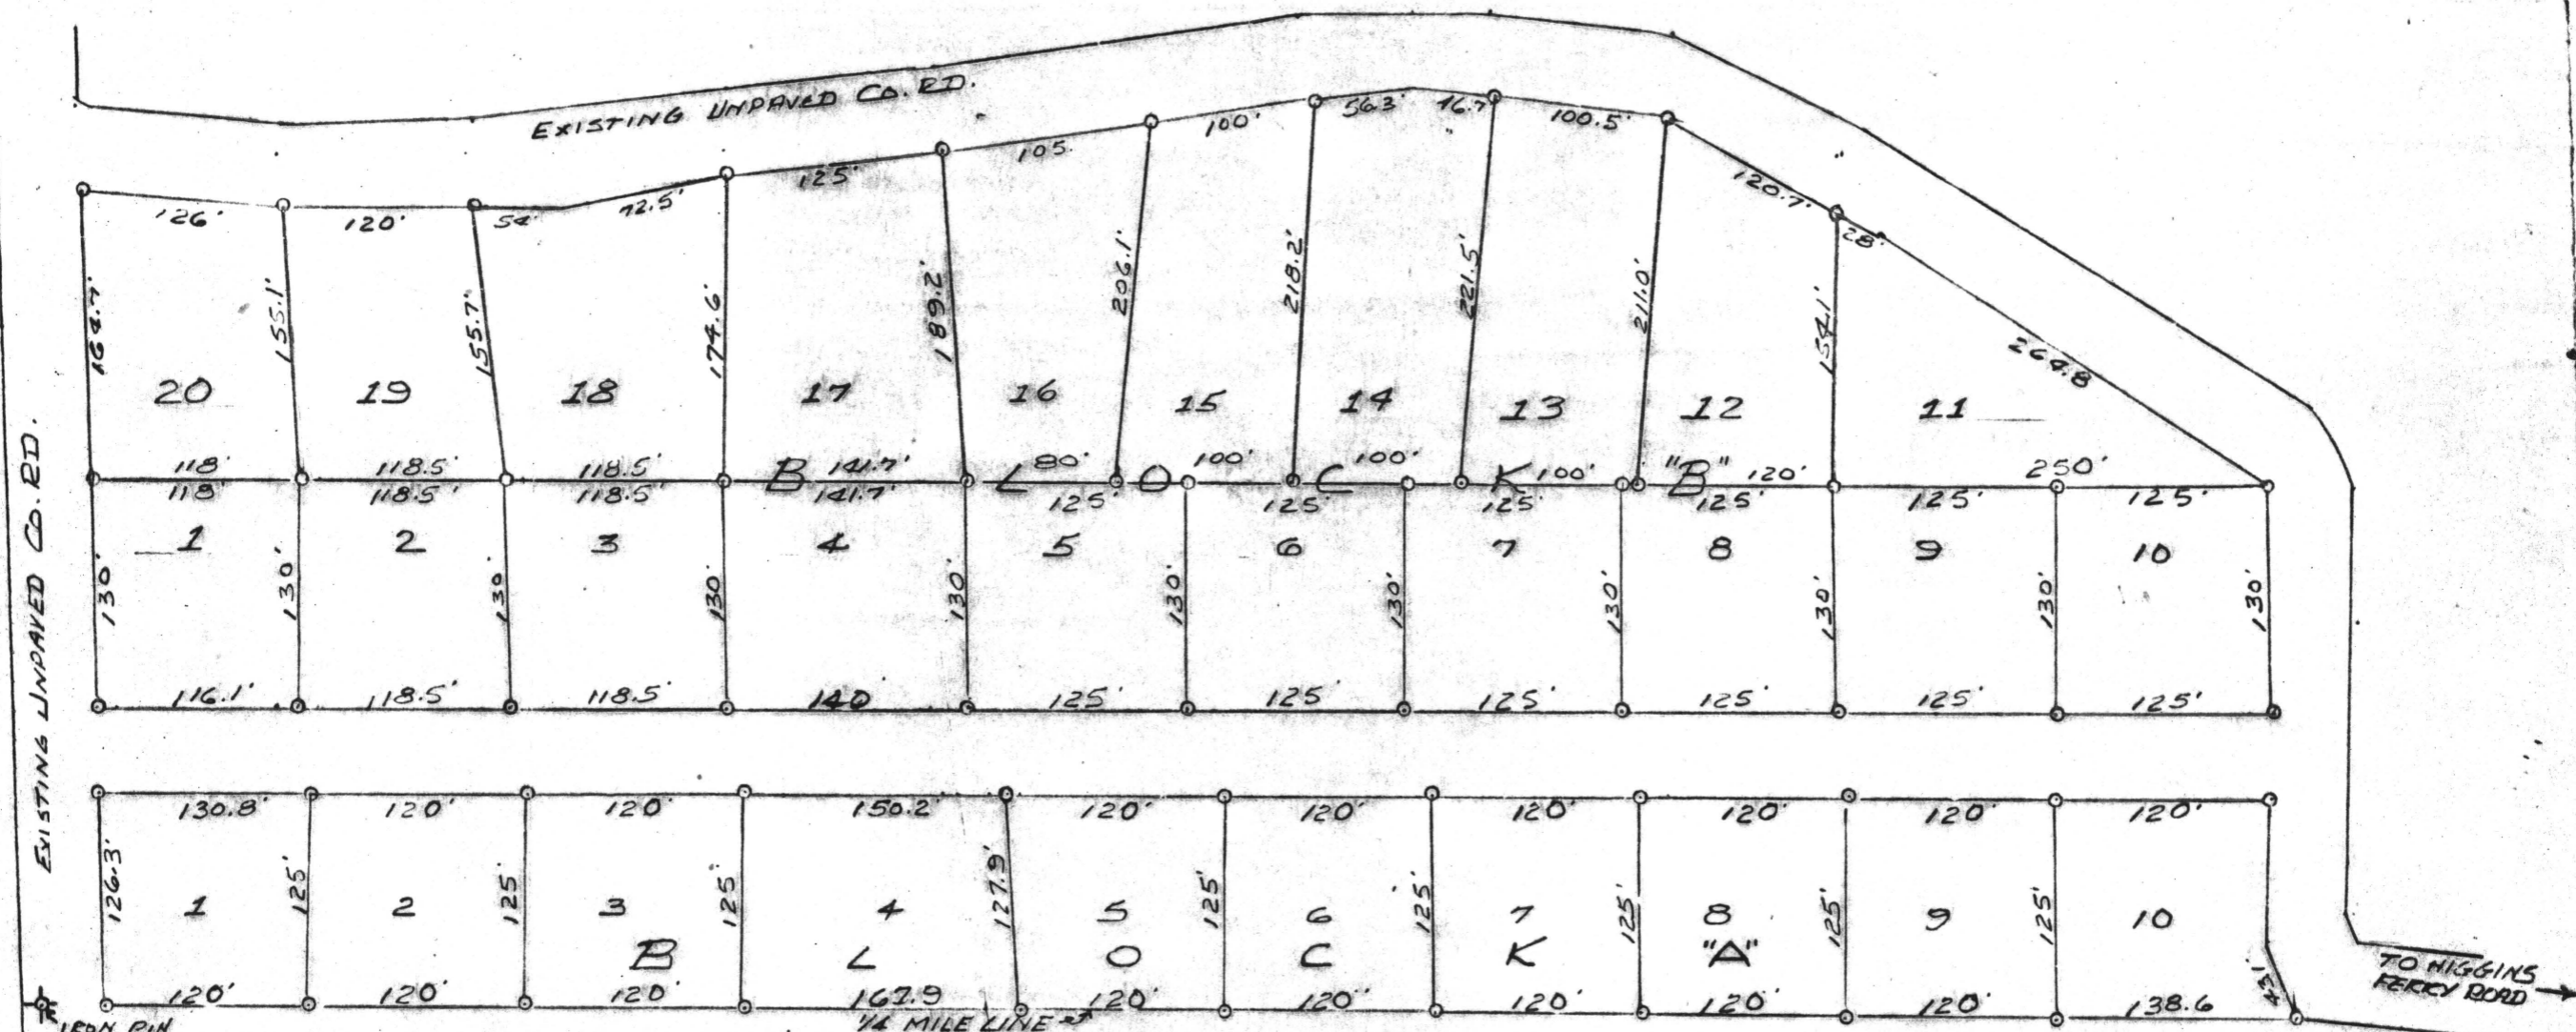 EXISTING UNPAVED CO. RD.
126' 120' 54' 72.5' 125' 105. 100' 56.3' 46.7' 100.5' 120.7' 28' 264.8
164.7' 155.1' 155.7' 174.6' 189.2' 206.1' 218.2' 221.5' 211.0' 154.1'
20 19 18 17 16 15 14 13 12 11
118' 118.5' 118.5' 141.7' 80' 100' 100' 100' 120' 250'
BLOCK "B"
118' 118.5' 118.5' 141.7' 125' 125' 125' 125' 125' 125'
1 2 3 4 5 6 7 8 9 10
130' 130' 130' 130' 130' 130' 130' 130' 130' 130' 130'
116.1' 118.5' 118.5' 140' 125' 125' 125' 125' 125' 125'
EXISTING UNPAVED CO. RD.
130.8' 120' 120' 150.2' 120' 120' 120' 120' 120' 120'
126.3' 125' 125' 125' 127.9' 125' 125' 125' 125' 125'
1 2 3 4 5 6 7 8 9 10
BLOCK "A"
43.1'
120' 120' 120' 167.9 120' 120' 120' 120' 120' 138.6
TO HIGGINS
FERRY ROAD
IRON PIN
1/4 MILE LINE